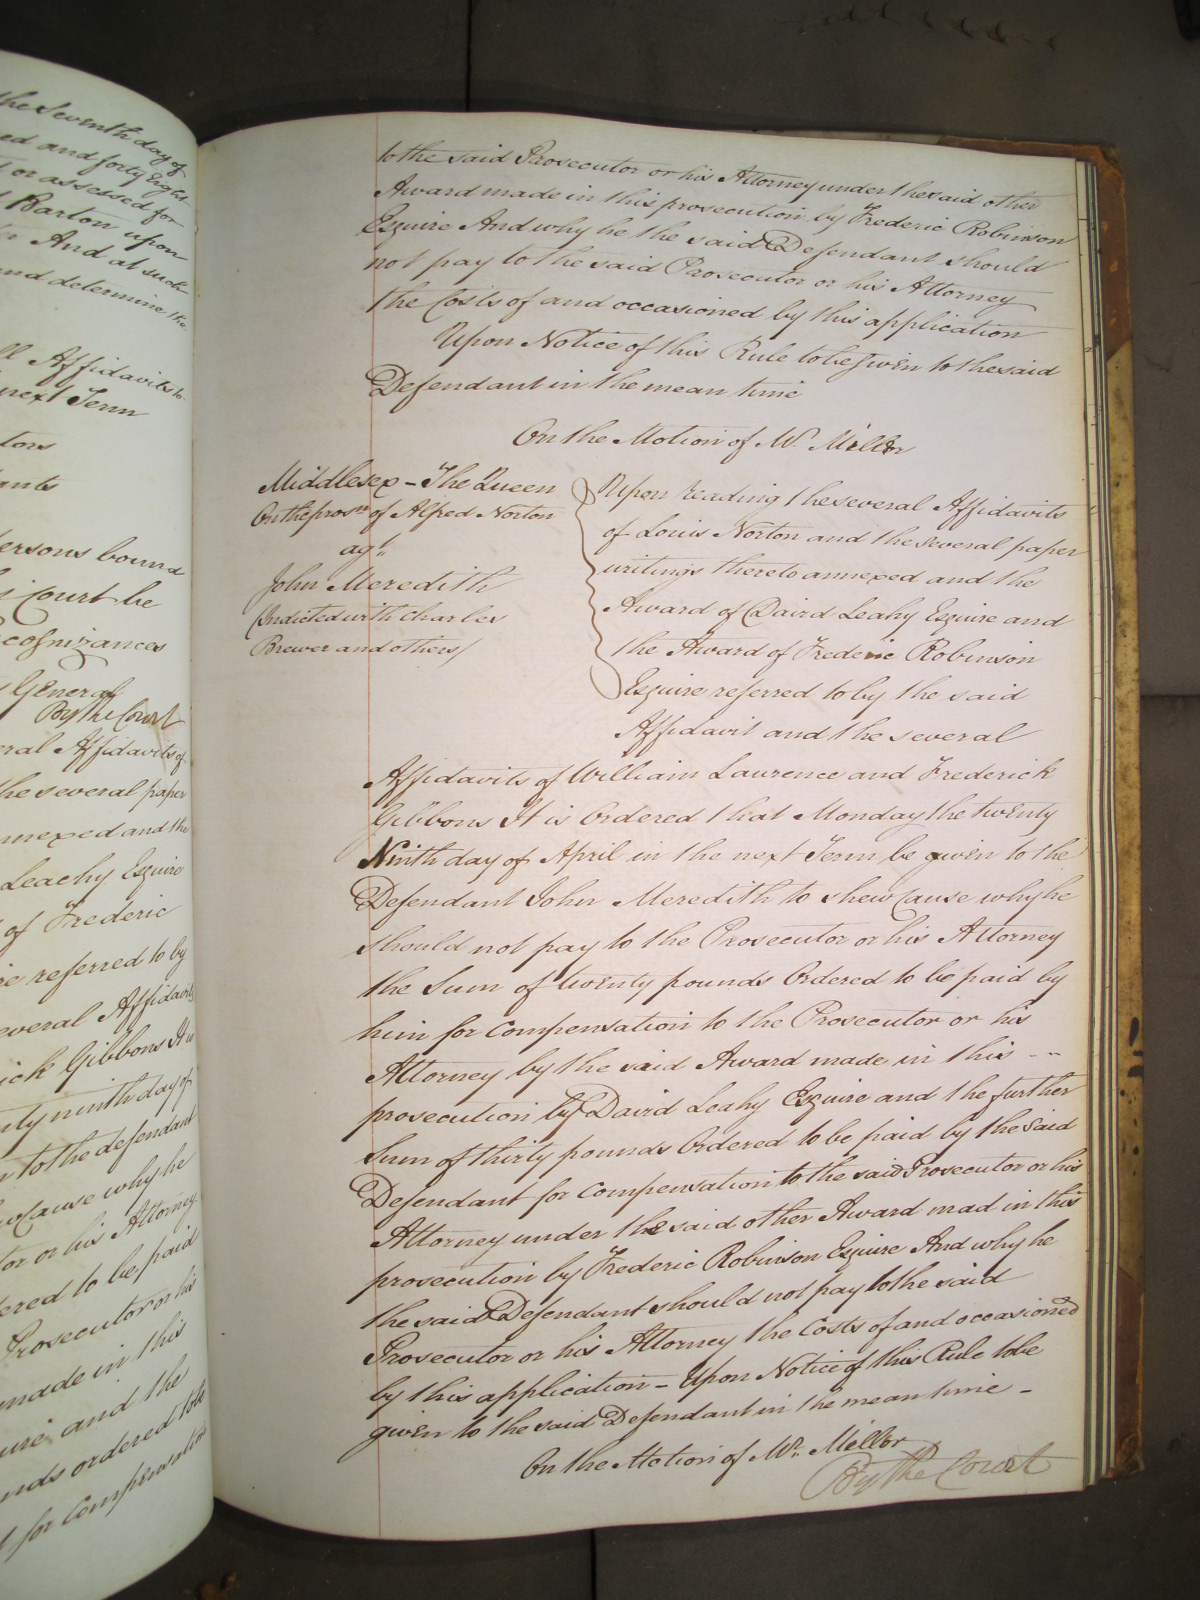 the Seventh day of
ed and forty Eight
or assessed for
Barton upon
And at such
and determine the
ll Affidavits to
next Term
tors
ants
ersons bound
s Court be
ecognizances
General
By the Court
eral Affidavits of
the several paper
nnexed and the
Leachy Esquire
of Frederic
re referred to by
everal Affidavits
ick Gibbons It is
nty ninth day of
n to the defendant
ew Cause why he
tor or his Attorney
ered to be paid
Prosecutor or his
made in this
uire and the
nds ordered to be
for Compensation
to the said Prosecutor or his Attorney under the said other
Award made in this prosecution by Frederic Robinson
Esquire And why he the said Defendant should
not pay to the said Prosecutor or his Attorney
the Costs of and occasioned by this application
Upon Notice of this Rule to be given to the said
Defendant in the mean time
On the Motion of Mr. Mellor
Middlesex – The Queen
On the prosn of Alfred Norton
agt.
John Meredith
(Indicted with Charles
Brewer and others)
Upon reading the several Affidavits
of Louis Norton and the several paper
writings thereto annexed and the
Award of David Leahy Esquire and
the Award of Frederic Robinson
Esquire referred to by the said
Affidavit and the several
Affidavits of William Laurence and Frederick
Gibbons It is Ordered that Monday the twenty
Ninth day of April in the next Term be given to the
Defendant John Meredith to shew Cause why he
should not pay to the Prosecutor or his Attorney
the Sum of twenty pounds Ordered to be paid by
him for Compensation to the Prosecutor or his
Attorney by the said Award made in this - -
prosecution by David Leahy Esquire and the further
Sum of thirty pounds Ordered to be paid by the said
Defendant for Compensation to the said Prosecutor or his
Attorney under the said other Award mad in this
prosecution by Frederic Robinson Esquire And why he
the said Defendant should not pay to the said
Prosecutor or his Attorney the Costs of and occasioned
by this application – Upon Notice of this Rule to be
given to the said Defendant in the mean time –
On the Motion of Mr. Mellor
By the Court